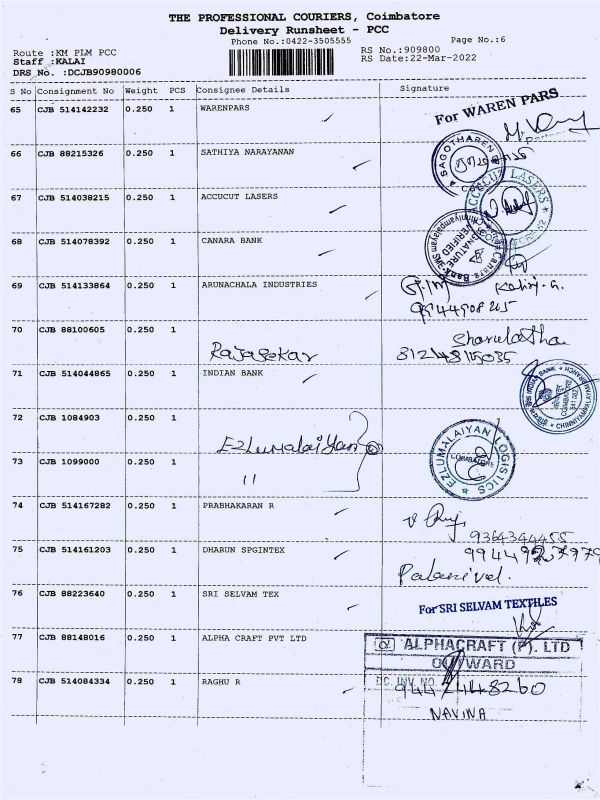 THE PROFESSIONAL COURIERS, Coimbatore
Delivery Runsheet - PCC
Phone No.:0422-3505555
Page No.:6
Route :KM PLM PCC
RS No.:909800
Staff :KALAI
RS Date:22-Mar-2022
DRS No. :DCJB90980006
S No Consignment No Weight PCS Consignee Details Signature
65 CJB 514142232 0.250 1 WARENPARS
For WAREN PARS
66 CJB 88215326 0.250 1 SATHIYA NARAYANAN
SAGOTHAREN
67 CJB 514038215 0.250 1 ACCUCUT LASERS
LASERS
68 CJB 514078392 0.250 1 CANARA BANK
SIGNATURE VERIFIED
Canara Bank
69 CJB 514133864 0.250 1 ARUNACHALA INDUSTRIES
70 CJB 88100605 0.250 1
Rajasekar
Sharulatha
71 CJB 514044865 0.250 1 INDIAN BANK
72 CJB 1084903 0.250 1
Ezlumalaiyan
EZLUMALAIYAN LOGISTICS
COIMBATORE
73 CJB 1099000 0.250 1
11
74 CJB 514167282 0.250 1 PRABHAKARAN R
9364344455
75 CJB 514161203 0.250 1 DHARUN SPGINTEX
Palanivel.
76 CJB 88223640 0.250 1 SRI SELVAM TEX
For SRI SELVAM TEXTILES
77 CJB 88148016 0.250 1 ALPHA CRAFT PVT LTD
ALPHACRAFT (P). LTD
78 CJB 514084334 0.250 1 RAGHU R
NAVINA